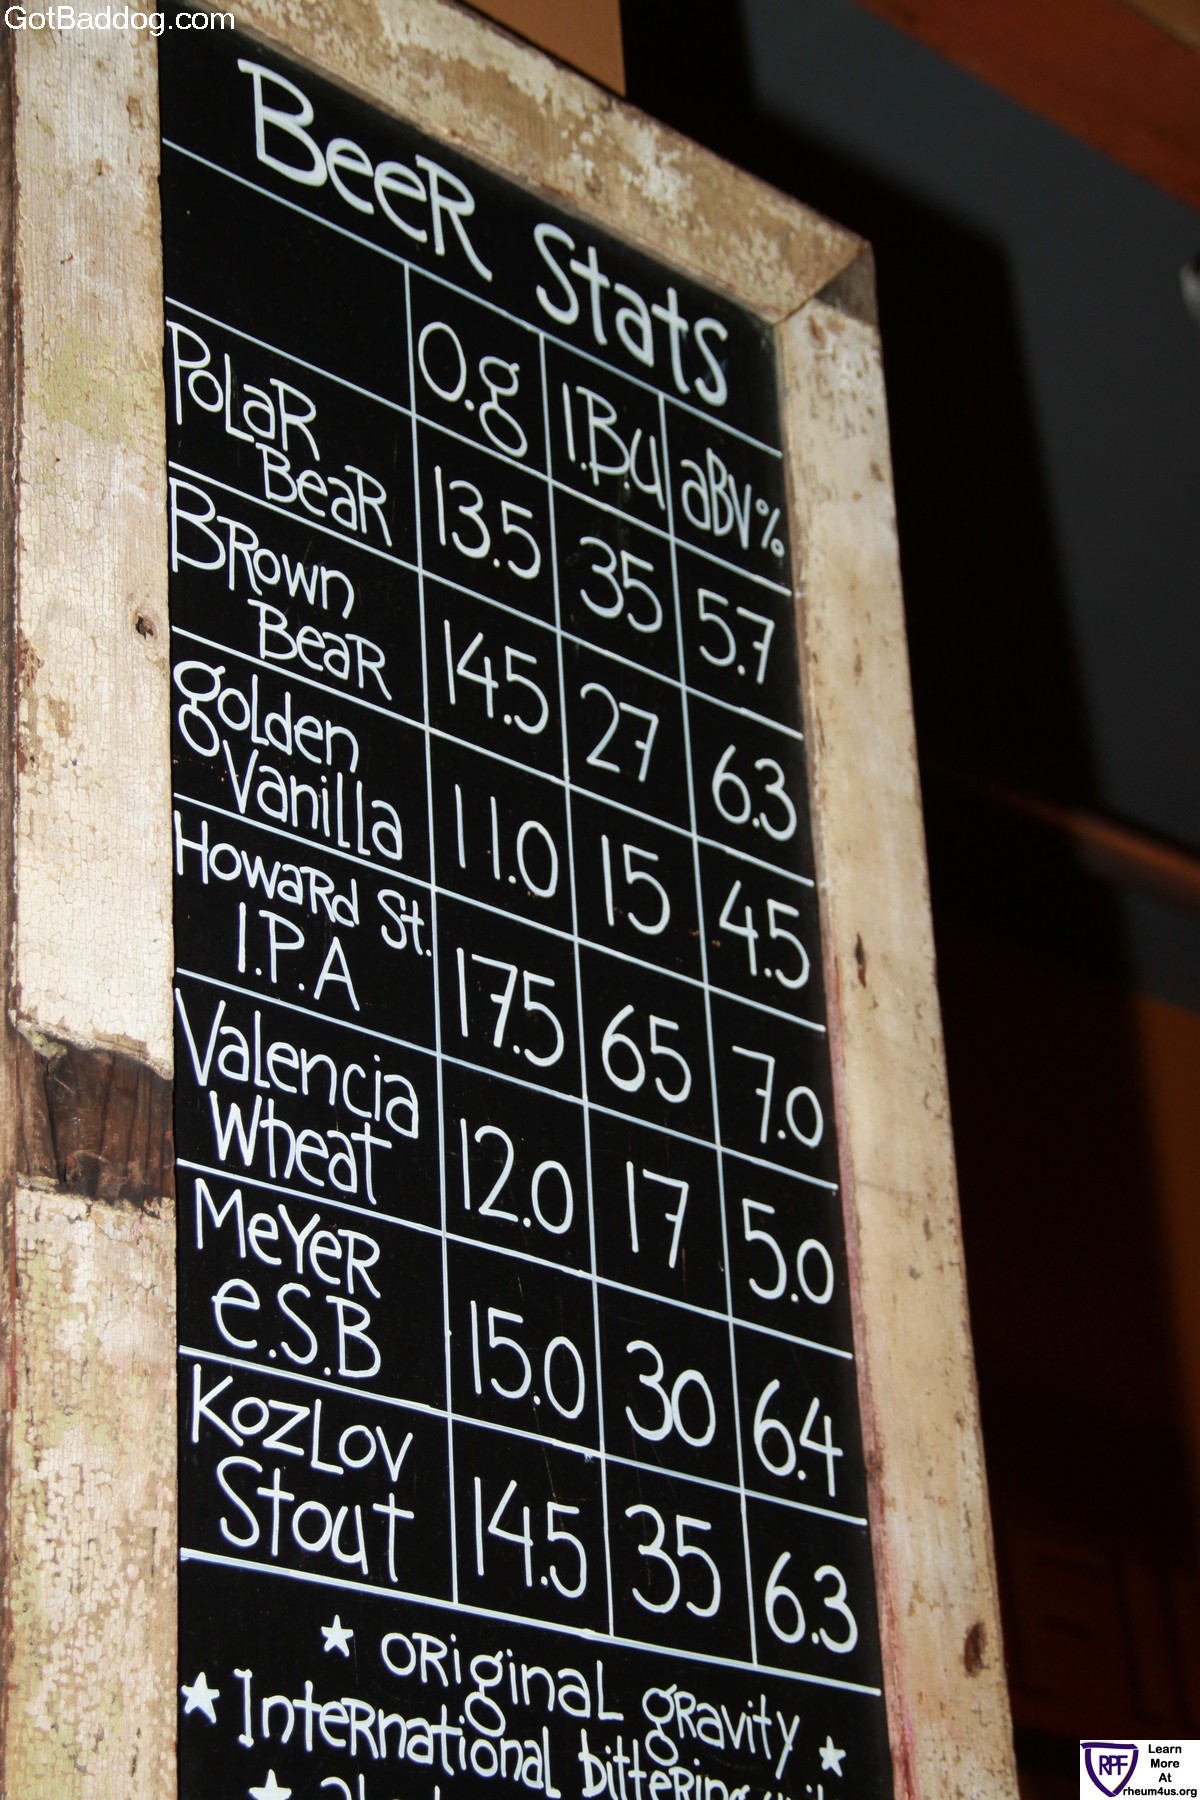 GotBaddog.com
Beer Stats
O.g I.B.U aBV%
Polar
Bear 13.5 35 5.7
Brown
Bear 14.5 27 6.3
golden
Vanilla 11.0 15 4.5
Howard St.
I.P.A 17.5 65 7.0
Valencia
Wheat 12.0 17 5.0
Meyer
e.S.B 15.0 30 6.4
Kozlov
Stout 14.5 35 6.3
★ original gravity ★
★ International bittering
RPF
Learn
More
At
rheum4us.org